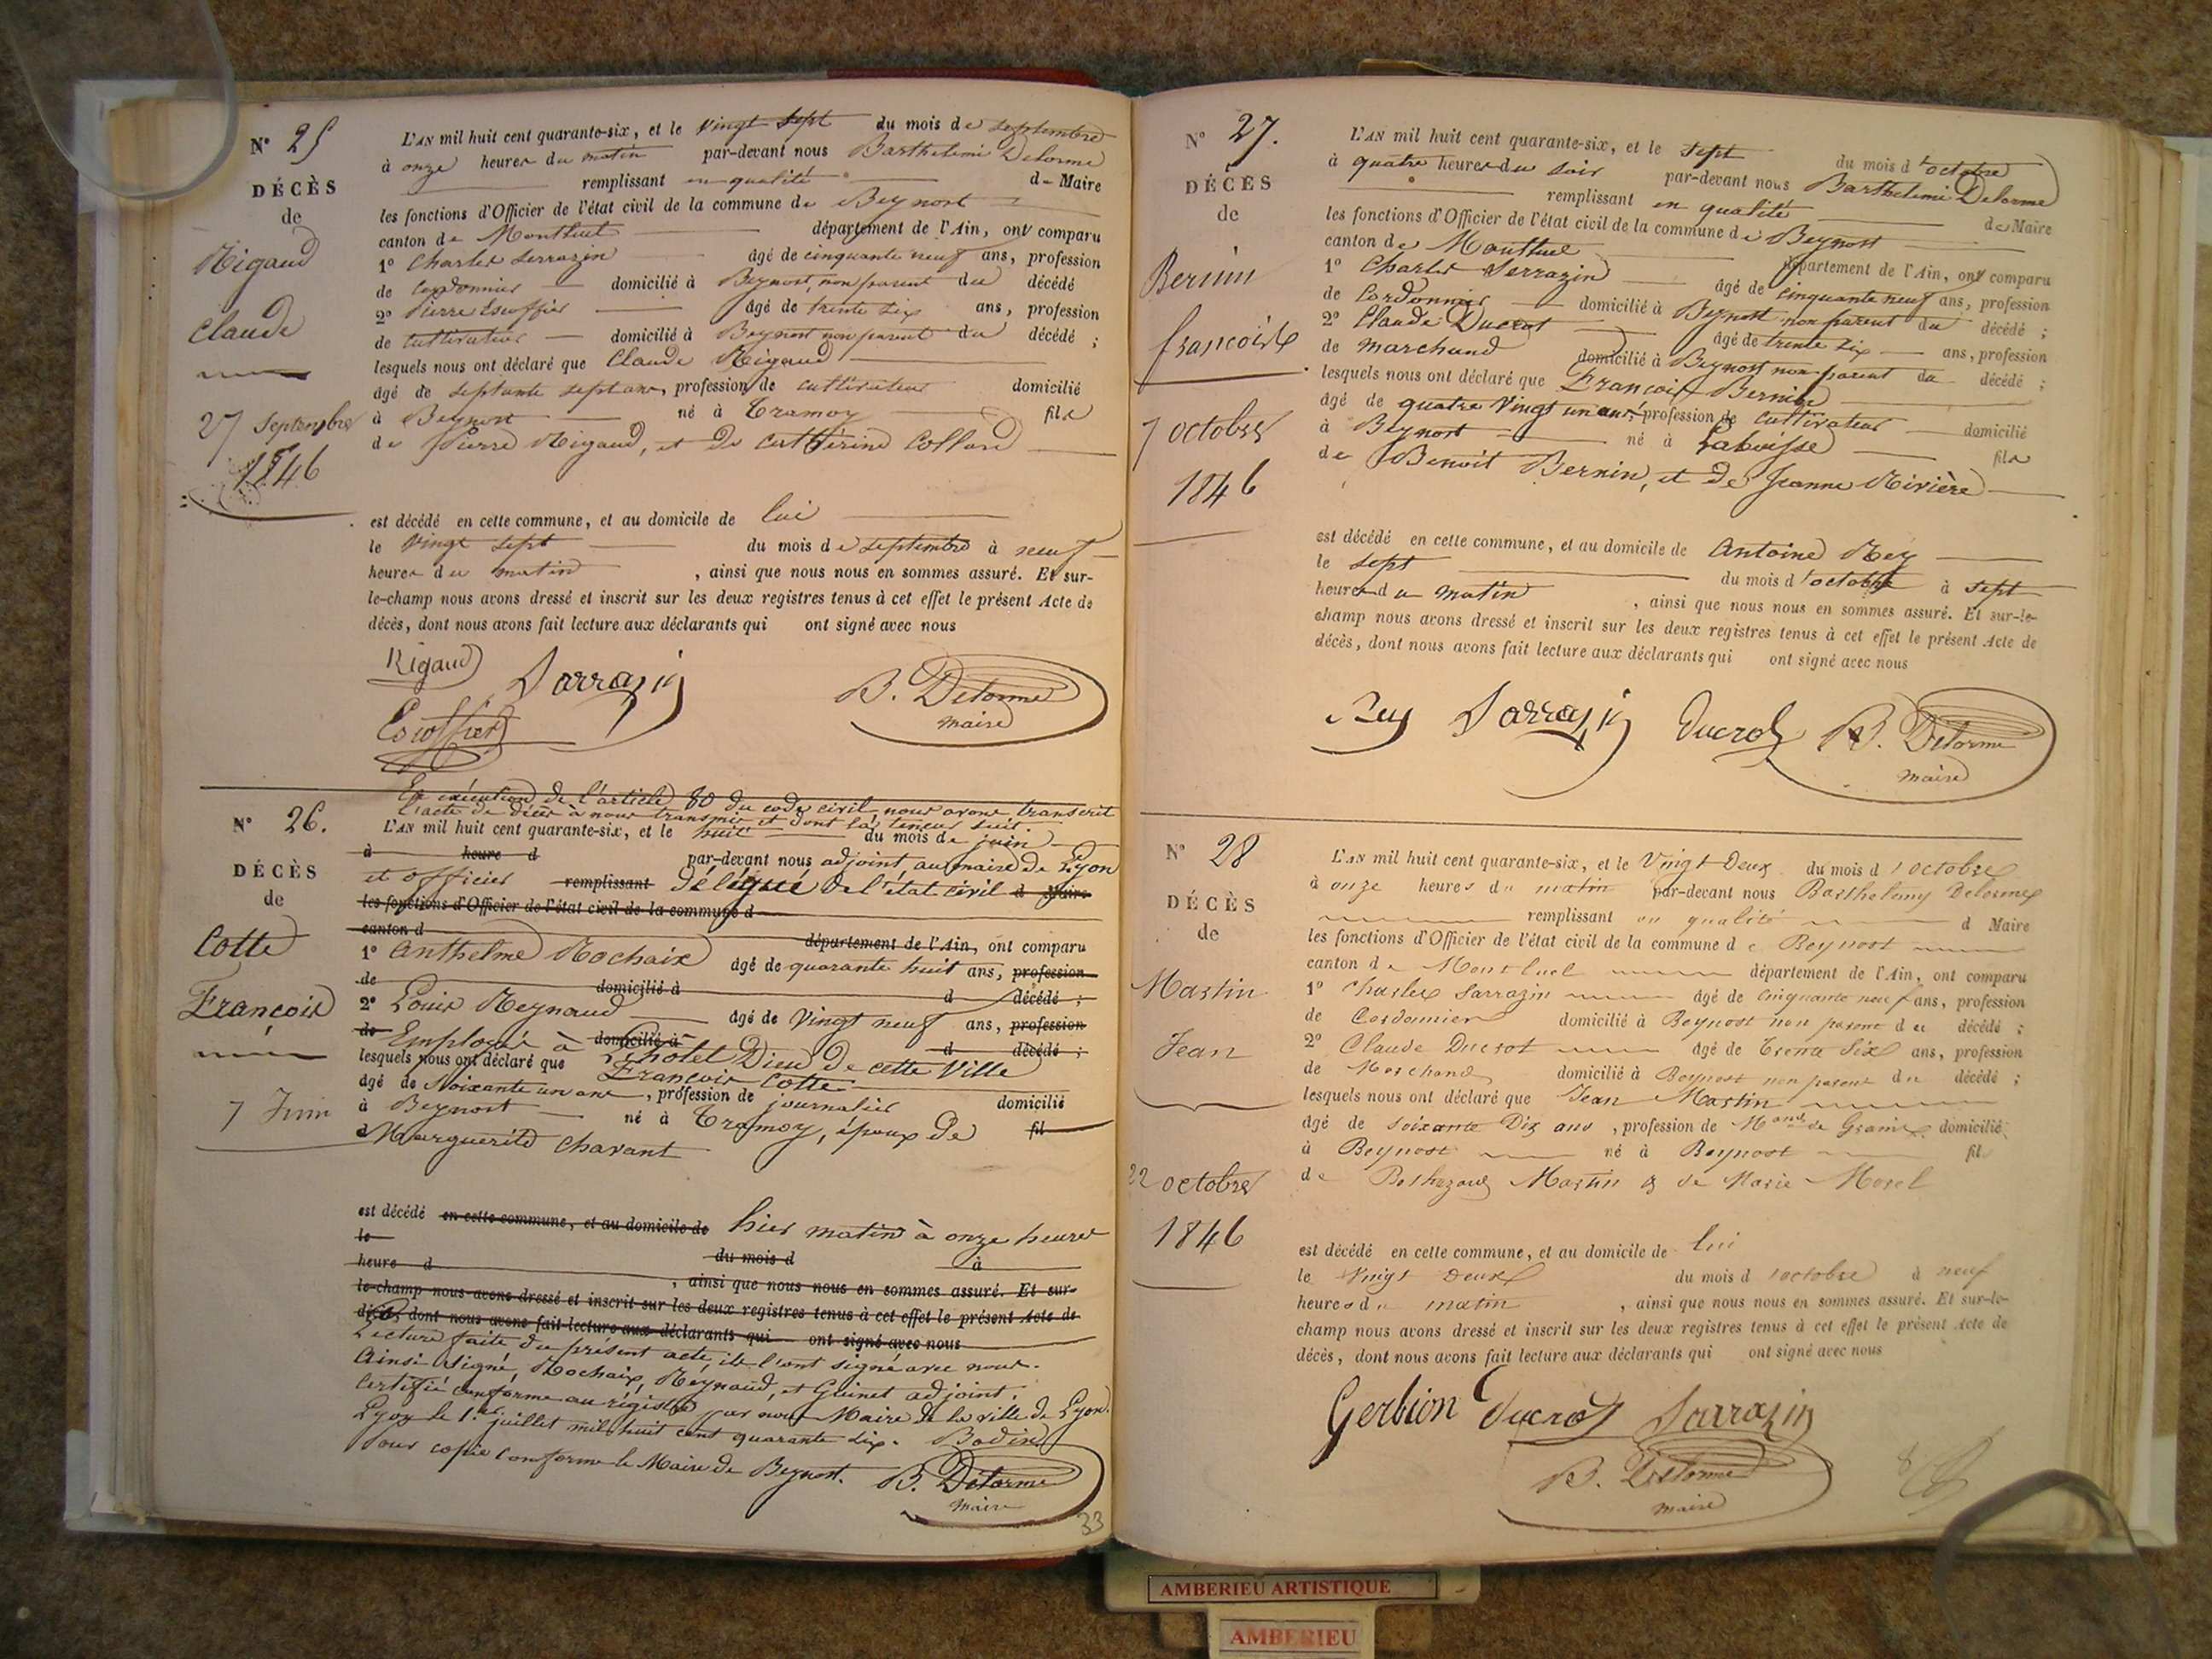 N° 25
DÉCÈS
de
Rigaud
Claude
27 Septembre
1846
L'AN mil huit cent quarante-six, et le vingt sept du mois de septembre
à onze heures du matin par-devant nous Barthelemi Delorme
remplissant en qualité de Maire
les fonctions d'Officier de l'état civil de la commune de Beynost
canton de Montluel département de l'Ain, ont comparu
1° Charles Serrazin âgé de cinquante neuf ans, profession
de Cordonnier domicilié à Beynost, non parent du décédé
2° Pierre Escoffier âgé de trente six ans, profession
de cultivateur domicilié à Beynost non parent du décédé ;
lesquels nous ont déclaré que Claude Rigaud
âgé de septante sept ans, profession de cultivateur domicilié
à Beynost né à Tramoy fils
de Pierre Rigaud, et de Catherine Collard
est décédé en cette commune, et au domicile de lui
le vingt sept du mois de septembre à neuf
heures du matin , ainsi que nous nous en sommes assuré. Et sur-
le-champ nous avons dressé et inscrit sur les deux registres tenus à cet effet le présent Acte de
décès, dont nous avons fait lecture aux déclarants qui ont signé avec nous
Rigaud Sarrazin B. Delorme
Escoffier maire
N° 26.
DÉCÈS
de
Cotte
François
7 Juin
En exécution de l'article 80 du code civil, nous avons transcrit
l'acte de décès à nous transmis et dont la teneur suit.
L'AN mil huit cent quarante-six, et le huit du mois de juin
à heure d par-devant nous adjoint au maire de Lyon
et officier remplissant délégué de l'état civil d Maire
les fonctions d'Officier de l'état civil de la commune d
canton d département de l'Ain, ont comparu
1° Anthelme Rochaix âgé de quarante huit ans, profession
de domicilié à d décédé ;
2° Louis Reynaud âgé de vingt neuf ans, profession
de Employé à domicilié à L'hotel Dieu de cette Ville d décédé ;
lesquels nous ont déclaré que François Cotte
âgé de soixante un ans, profession de journalier domicilié
à Beynost né à Tramoy, époux de fil
d Marguerite Chavant
est décédé en cette commune, et au domicile de hier matin à onze heures
le du mois d à
heure d , ainsi que nous nous en sommes assuré. Et sur-
le-champ nous avons dressé et inscrit sur les deux registres tenus à cet effet le présent Acte de
décès, dont nous avons fait lecture aux déclarants qui ont signé avec nous
Lecture faite du présent acte, ils l'ont signé avec nous.
Ainsi signé, Rochaix, Reynaud, et Guinet adjoint.
Certifié conforme au régistre par nous Maire de la ville de Lyon.
Lyon le 1.er juillet mil huit cent quarante six. Bodin
Pour copie conforme le Maire de Beynost. B. Delorme
maire
33
N° 27.
DÉCÈS
de
Bernin
françois
7 octobre
1846
L'AN mil huit cent quarante-six, et le sept du mois d'octobre
à quatre heures du soir par-devant nous Barthelemi Delorme
remplissant en qualité de Maire
les fonctions d'Officier de l'état civil de la commune de Beynost
canton de Montluel département de l'Ain, ont comparu
1° Charles Serrazin âgé de cinquante neuf ans, profession
de Cordonnier domicilié à Beynost non parent du décédé ;
2° Claude Ducrot âgé de trente six ans, profession
de marchand domicilié à Beynost non parent du décédé ;
lesquels nous ont déclaré que François Bernin
âgé de quatre vingt un ans, profession de cultivateur domicilié
à Beynost né à Laboisse fils
de Benoit Bernin, et de Jeanne Rivière
est décédé en cette commune, et au domicile de Antoine Rey
le sept du mois d'octobre à sept
heures du matin , ainsi que nous nous en sommes assuré. Et sur-le-
champ nous avons dressé et inscrit sur les deux registres tenus à cet effet le présent Acte de
décès, dont nous avons fait lecture aux déclarants qui ont signé avec nous
Rey Sarrazin Ducrot B. Delorme
maire
N° 28
DÉCÈS
de
Martin
Jean
22 octobre
1846
L'AN mil huit cent quarante-six, et le Vingt Deux du mois d'octobre
à onze heures du matin par-devant nous Barthelemy Delorme
remplissant en qualité d Maire
les fonctions d'Officier de l'état civil de la commune de Beynost
canton de Montluel département de l'Ain, ont comparu
1° Charles Sarrazin âgé de Cinquante neuf ans, profession
de Cordonnier domicilié à Beynost non parent du décédé ;
2° Claude Ducrot âgé de Trente Six ans, profession
de Marchand domicilié à Beynost non parent du décédé ;
lesquels nous ont déclaré que Jean Martin
âgé de soixante Dix ans , profession de Mand de Grains domicilié
à Beynost né à Beynost fil
de Martin & de Marie Morel
est décédé en cette commune, et au domicile de lui
le Vingt Deux du mois d'octobre à neuf
heures du matin , ainsi que nous nous en sommes assuré. Et sur-le-
champ nous avons dressé et inscrit sur les deux registres tenus à cet effet le présent Acte de
décès, dont nous avons fait lecture aux déclarants qui ont signé avec nous
Gerbion Ducrot Sarrazin
B. Delorme
maire
AMBERIEU ARTISTIQUE
AMBERIEU